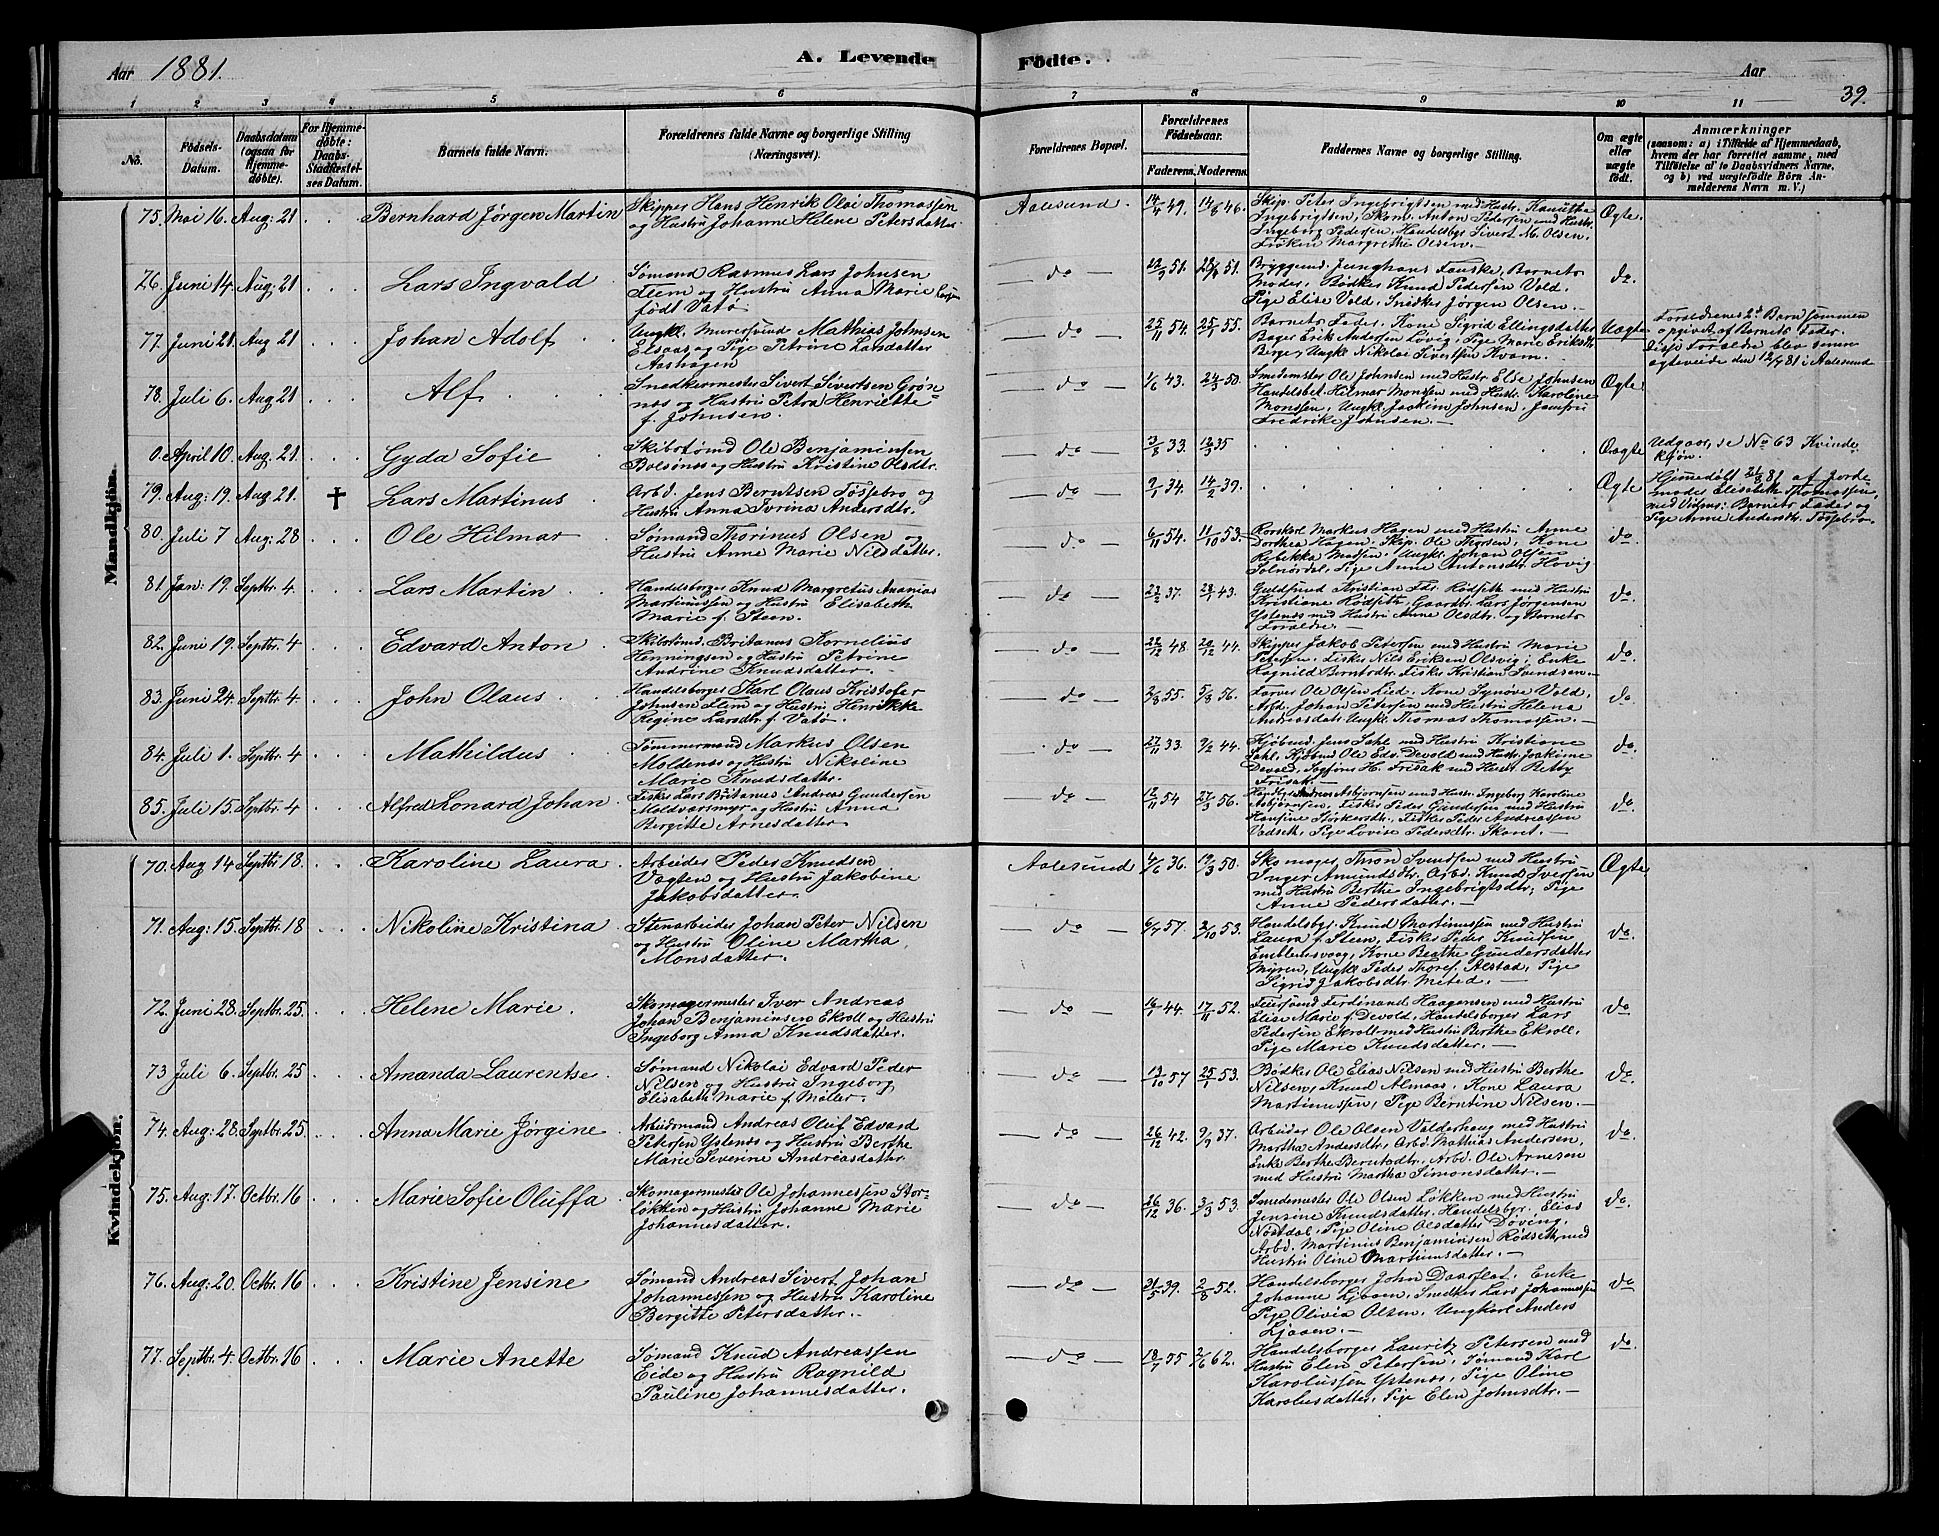 Aar 1881.
A. Levende
Födte.
Aar
39.
1 2 3 4 5 6 7 8 9 10 11
No.
Födsels-Datum.
Daabsdatum (ogsaa for Hjemmedöbte).
For Hjemmedöbte: Daabs-Stadfæstelses Datum.
Barnets fulde Navn.
Forældrenes fulde Navne og borgerlige Stilling (Næringsvei).
Forældrenes Bopæl.
Forældrenes Födselsaar.
Faderens. Moderens.
Faddernes Navne og borgerlige Stilling.
Om ægte eller uægte födt.
Anmærkninger
(saasom: a) i Tilfælde af Hjemmedaab,
hvem der har forrettet samme, med
Tilföielse af to Daabsvidners Navne,
og b) ved uægtefödte Börn Anmelderens Navn m. V.)
Mandkjön.
75. Mai 16. Aug: 21 Bernhard Jørgen Martin
Skipper Hans Henrik Olai Thomassen
og Hustru Johanne Helene Petersdatter
Aalesund. 14/4 49. 14/8 46.
Skip. Peter Ingebrigtsen med Hustr. Kanutha
Ingebrigtsen, Skom. Anton Pedersen med Hustr.
Ingeborg Pedersen, Handelsbgr Sivert M. Olsen,
Frøken Margrethe Olsen.
Ægte.
76. Juni 14. Aug. 21 Lars Ingvald
Sømand Rasmus Lars Johnsen
Flem og Hustru Anna Marie Larsen
født Vatø
do 51. 51.
Junghans Fauske, Barnets
Moder, Bødker Knud Pedersen Vold,
Pige Elise Vold, Snedker Jørgen Olsen.
do.
77. Juni 21. Aug 21 Johan Adolf
Ungkl. Murersvend Mathias Johnsen
Elsaas og Pige Petrine Larsdatter
Aashagen
do 25/11 54. 25/1 55.
Barnets Fader, Kone Sigrid Ellingsdatter
Bager Erik Andersen Løvig, Pige Marie Eriksdtr
Berge, Ungkl. Nikolai Sivertsen Kvam.
Uægte
Forældrenes 2det Barn sammen
opgivet af Barnets Fader.
Disse Forældre blev senere
ægteviede den 12/9 81 i Aalesund
78. Juli 6. Aug 21 Alf
Snedkermester Sivert Sivertsen Grønnæs og Hustru Petra Henriette
f. Johnsen.
do 1/6 43. 24/3 50.
Smedemster Ole Johnsen med Hustr. Else Johnsen
Handelsbet. Hilmar Monssen med Hustr. Karoline
Monssen, Ungkl. Joakim Johnsen, Jomfru
Fredrike Johnsen.
Ægte
0. April 10. Aug. 21. Gyda Sofie
Skibstømd Ole Benjaminsen
Bolsønæs og Hustru Kristine Olsdtr.
do 3/8 33. 12/3 35
Uægte
Udgaar, se No 63 Kvindekjøn.
79. Aug: 19. Aug 21. † Lars Martinus
Arbd. Jens Berntsen Fossebro og
Hustru Anna Turina Andersdtr.
do 9/1 34. 14/2 39.
Ægte
Hjemedøbt 21/8 81 af Jordemoder Elisabeth Thomassen,
med Vidner: Barnets Fader og
Pige Anne Andersdtr. Fossebro.
80. Juli 7 Aug: 28 Ole Hilmar
Sømand Thorinus Olsen og
Hustru Anne Marie Nilsdatter.
do 6/11 54. 11/10 53.
Rorskarl Markus Hagen med Hustru Anne
Dorthea Hagen, Skip. Ole Thorsen, Kone
Rebekka Madsen, Ungkl. Johan Olsen
Solnørdal, Pige Anne Antonsdtr. Hovig
do.
81. Jan: 19. Septbr. 4. Lars Martin
Handelsborger Knud Margretus Ananias
Martinussen og Hustru Elisabeth
Marie f. Steen.
do 23/2 37. 28/1 43.
Guldsmd Kristian Fdr. Rødseth med Hustru
Kristiane Rødseth, Gaardbr. Lars Jørgensen
Ystenæs med Hustru Anne Olsdtr. og Barnets
Forældre.
do.
82. Juni 19. Septbr. 4 Edvard Anton
Skibstmd. Britanus Kornelius
Henningsen og Hustru Petrine
Andrine Knudsdatter.
do 22/12 48. 20/12 44.
Skipper Jakob Petersen med Hustru Marie
Petersen, Fisker Nils Eriksen Olsvig, Enke
Ragnild Berntsdtr. Fisker Kristian Svendsen.
do.
83. Juni 24. Septbr. 4. John Olaus
Handelsborger Karl Olaus Kristofer
Johnsen Flem og Hustru Henrikke
Regine Larsdtr. f. Vatø.
do 2/8 55. 5/8 56.
Farver Ole Olsen Lied, Kone Synøve Vold,
Arbd. Johan Petersen med Hustru Helena
Andreasdatr. Ungkl. Thomas Thomassen.
do.
84. Juli 1. Septbr. 4 Mathildus
Tømmermand Markus Olsen
Moldenæs og Hustru Nikoline
Marie Knudsdatter.
do 27/11 33. 9/2 44.
Kjøbmd. Jens Dahl med Hustru Kristiane
Dahl, Kjøbmd Ole Edv. Devold med Hustr. Joakime
Devold, Sogfrms H. Frisak med Hustr. Betty
Frisak.
do.
85. Juli 15. Septbr. 4 Alfred Lonard Johan
Fisker Lars Britanus Andreas Gundersen
Moldværsmyr og Hustru Anna
Bergitte Arnesdatter
do 12/11 54 27/3 56.
Andreas Asbjørnsen med Hustr. Ingeborg Karoline
Asbjørnsen, Fisker Peder Gundersen med Hustru
Hansine Størkersdtr. Fisker Peder Andreassen
Vadseth, Pige Lovise Pedersdtr. Skaret.
do.
Kvindekjön.
70. Aug 14 Septbr. 18. Karoline Laura
Arbeider Peder Knudsen
Vegten og Hustru Jakobine
Jakobsdatter.
Aalesund 4/6 36. 19/3 50.
Skomager Thron Svendsen med Hustru
Inger Amundsdtr. Arbd. Knud Iversen
med Hustru Berthe Ingebrigtsdtr, Pige
Anne Pedersdatter.
Ægte
71. Aug: 15. Septbr. 18 Nikoline Kristina
Stenarbeider Johan Peter Nilsen
og Hustru Oline Martha
Monsdatter.
do 6/7 57. 2/10 53.
Handelsbgr. Knud Martinussen med Hustru
Laura f. Steen, Fisker Peder Knudsen
Emblemsvaag, Kone Berthe Gundersdatter
Myren, Ungkl. Peder Thoref. Alstad, Pige
Sigrid Jakobsdtr. Mited.
do.
72. Juni 28. Septbr. 25. Helene Marie
Skomagermester Iver Andreas
Johan Benjaminsen Ekroll og Hustru
Ingeborg Anna Knudsdatter.
do 16/1 44. 17/11 52.
Ferdinand Haagensen med Hustru
Elise Marie f. Devold, Handelsborger Lars
Pedersen Ekroll med Hustru Berthe Ekroll,
Pige Marie Knudsdatter.
do.
73 Juli 6. Septbr. 25 Amanda Laurentse
Sømand Nikolai Edvard Peder
Nilsen og Hustru Ingeborg
Elisabeth Marie f. Møller.
do 13/10 57 25/1 53.
Bødker Ole Elias Nilsen med Hustru Berthe
Nilsen, Knud Almaas, Kone Laura
Martinussen, Pige Berntine Nilsen.
do.
74. Aug: 28. Septbr. 25. Anna Marie Jørgine
Arbeidsmand Andreas Oluf Edvard
Petersen Ystenæs og Hustru Berthe
Marie Severine Andreasdatter
do 26/12 42. 9/9 37.
Arbeider Ole Olsen Valderhaug med Hustru
Martha Andersdtr, Arbd. Mathias Andersen,
Enke Berthe Berntsdtr. Arbd. Ole Arnesen
med Hustru Martha Simonsdatter.
do.
75. Aug: 17. Octbr. 16 Marie Sofie Oluffa
Skomagermester Ole Johannessen Storløkken og Hustru Johanne Marie
Johannesdatter.
do 26/12 36. 3/3 53.
Smedemester Ole Olsen Løkken med Hustru
Jensine Knudsdatter, Handelsbgr. Elias
Nøstdal, Pige Oline Olsdatter Døving,
Arbd. Martinus Benjaminsen Rødseth, med
Hustru Oline Martinusdatter.
do.
76. Aug: 20. Octbr. 16 Kristine Jensine
Sømand Andreas Sivert Johan
Johannessen og Hustru Karoline
Bergitte Petersdatter.
do 31/5 39. 2/8 52.
Handelsborger John Daarflot, Enke
Johanne Ljøven, Snedker Lars Johannessen
Pige Olivia Olsen, Ungkarl Anders
Ljøven.
do
77. Septbr. 4. Octbr. 16 Marie Anette
Sømand Knud Andreassen
Eide og Hustru Ragnild
Pauline Johannesdatter.
do 18/7 55 2/6 62.
Handelsborger Lauritz Petersen med
Hustru Elen Petersen, Sømand Karl
Karolussen Ystenæs, Pige Oline
Karolusdatter, Pige Elen Johnsdtr.
do.